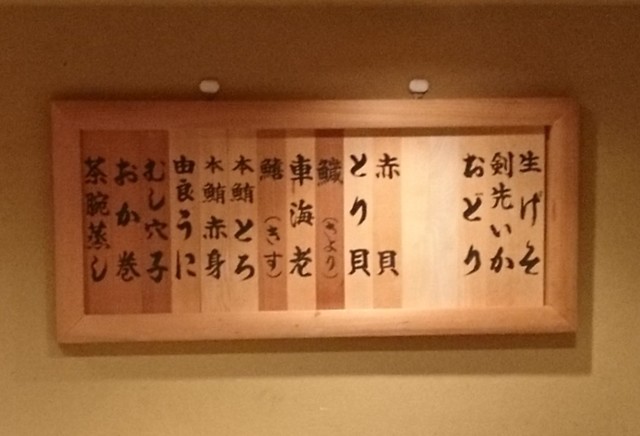 生げそ
剣先いか
おどり
赤貝
とり貝
鱵（さより）
車海老
鱚（きす）
本鮪とろ
本鮪赤身
由良うに
むし穴子
おか巻
茶腕蒸し